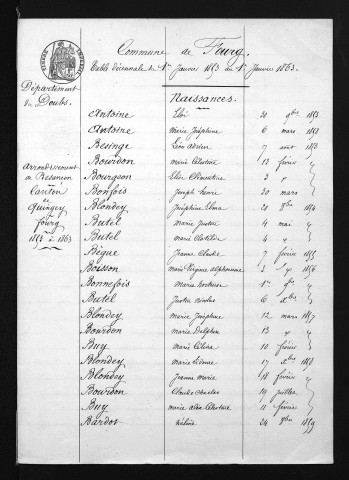 Commune de Fourg.
Table décennale du 1er Janvier 1853 au 1er Janvier 1863.
Département
du Doubs.
Arrondissement
de Besançon
Canton
de
Quingey
Fourg
1853 à 1863
Naissances.
Antoine Eloi 20 9bre 1853
Antoine Marie Joséphine 6 mars 1853
Besinge Léon Adrien 7 août 1853
Bourdon Marie Célestine 13 février "
Bourgeon Elise Clémentine 3 "
Bonfois Joseph Henri 20 mars
Blondey Joséphine 20 8bre 1854
Butel Marie Justine 4 mai "
Butel Marie Clotilde 4 "
Bègue Jeanne Claude 7 février 1855
Boisson Marie Virginie Alphonsine 3 " 1856
Bonnefois Marie 1er "
Butel Justin Nicolas 6 Xbre
Blondey Marie Joséphine 12 mars 1857
Bourdon Marie Delphine 13 "
Buy Marie Célina 10 février "
Blondey Marie 17 Xbre 1858
Blondey Jeanne Marie 18 février "
Bourdon Claude Charles 19 juillet
Buy Marie Célestine 11 février "
Bardot 24 1859